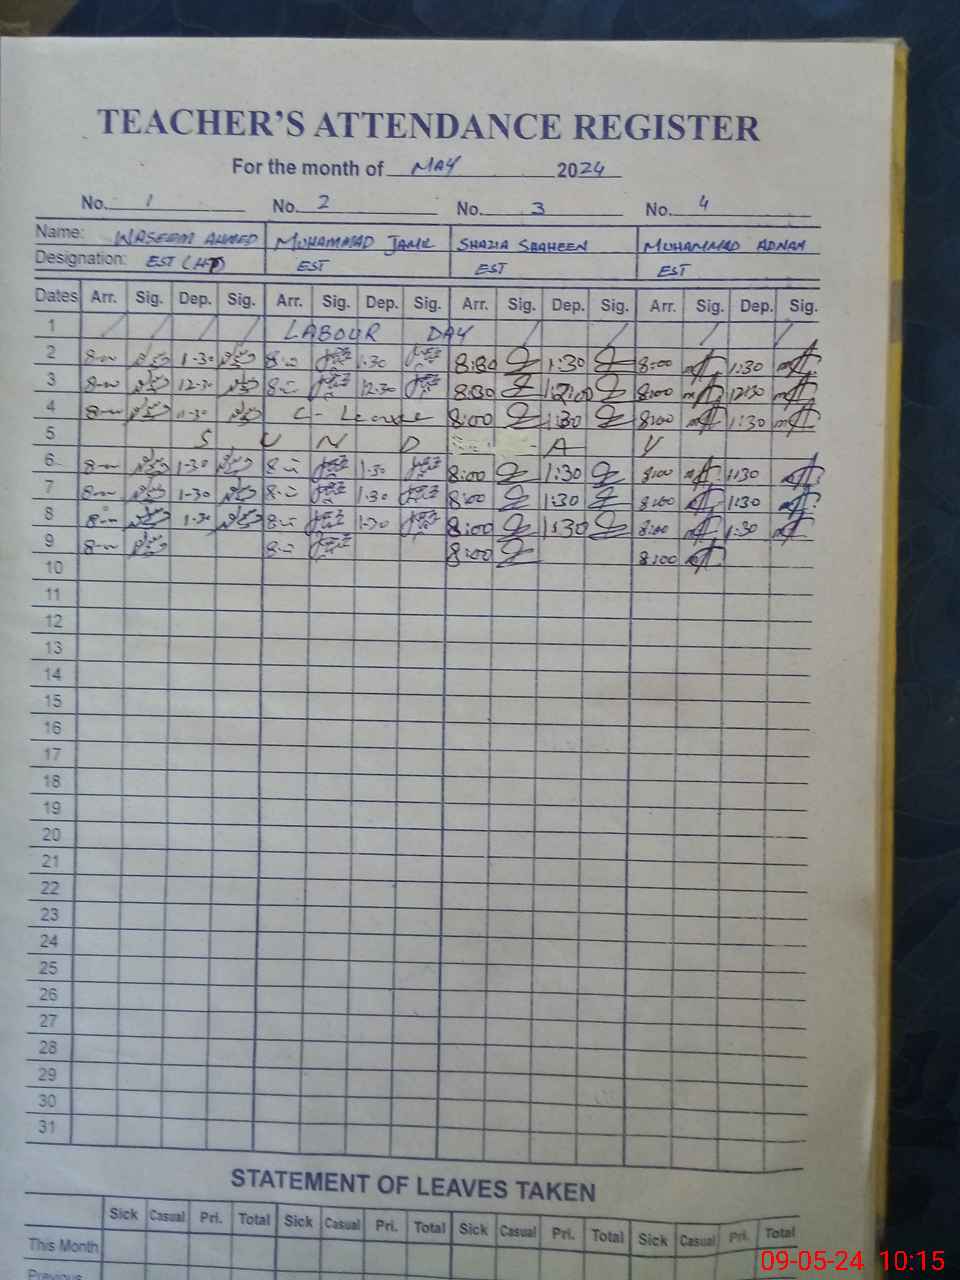 TEACHER'S ATTENDANCE REGISTER
For the month of MAY 2024
No. 1 No. 2 No. 3 No. 4
Name: WASEEM AHMED MUHAMMAD JAMIL SHAZIA SHAHEEN MUHAMMAD ADNAN
Designation: EST (HT) EST EST EST
Dates Arr. Sig. Dep. Sig. Arr. Sig. Dep. Sig. Arr. Sig. Dep. Sig. Arr. Sig. Dep. Sig.
1 LABOUR DAY
2 8-00 1-30 8-00 1.30 8:30 1:30 8:00 1:30
3 8-00 12-30 8-00 12.30 8:30 8:00 12:30
4 8-00 1-30 C-Leave 8:00 1:30 8:00 1:30
5 S U N D A Y
6 8-00 1-30 8-00 1-30 8:00 1:30 8:00 1:30
7 8-00 1-30 8-00 1.30 8:00 1:30 8:00 1:30
8 8-00 1-30 8-00 1-30 8:00 1:30 8:00 1:30
9 8-00 8-00 8:00 8:00
10
11
12
13
14
15
16
17
18
19
20
21
22
23
24
25
26
27
28
29
30
31
STATEMENT OF LEAVES TAKEN
Sick Casual Pri. Total Sick Casual Pri. Total Sick Casual Pri. Total Sick Casual Pri. Total
This Month
Previous
09-05-24 10:15